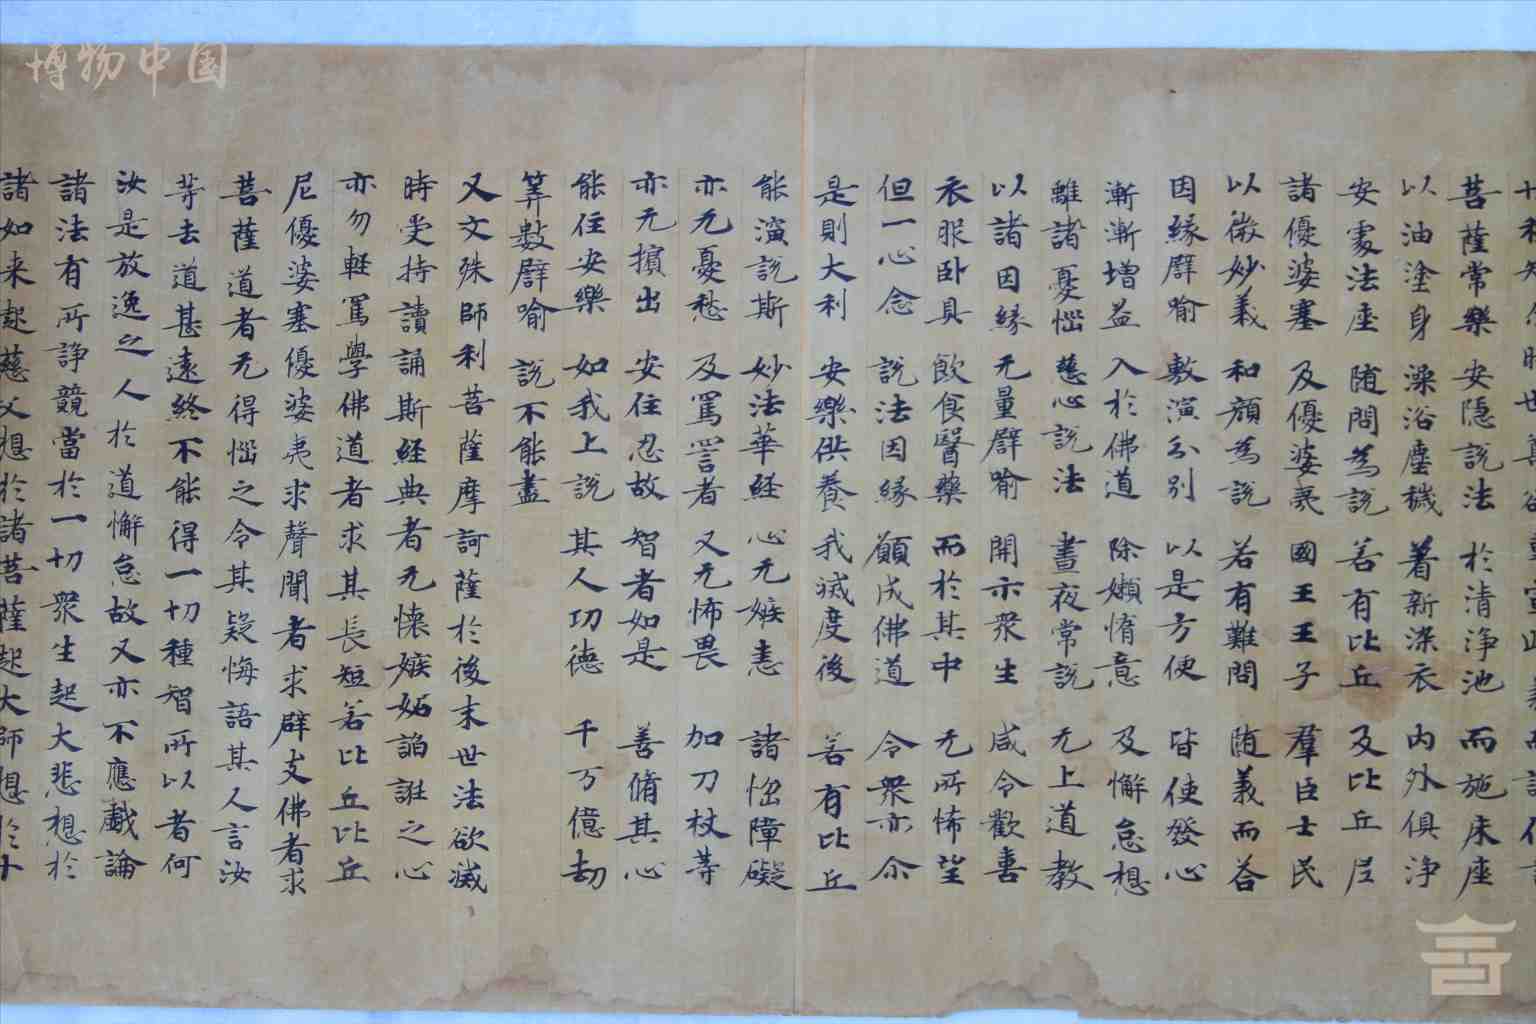 博物中国
菩薩常樂 安隱說法 於清淨池 而施床座
以油塗身 澡浴塵穢 著新染衣 內外俱淨
安處法座 随問為說 若有比丘 及比丘尼
諸優婆塞 及優婆夷 國王王子 羣臣士民
以微妙義 和顏為說 若有難問 随義而荅
因緣譬喻 敷演分別 以是方便 皆使發心
漸漸增益 入於佛道 除嬾惰意 及懈怠想
離諸憂惱 慈心說法 晝夜常說 无上道教
以諸因緣 无量譬喻 開示衆生 咸令歡喜
衣服卧具 飲食醫藥 而於其中 无所悕望
但一心念 說法因緣 願成佛道 令衆亦尒
是則大利 安樂供養 我滅度後 若有比丘
能演說斯 妙法華経 心无嫉恚 諸惱障礙
亦无憂愁 及罵詈者 又无怖畏 加刀杖等
亦无擯出 安住忍故 智者如是 善脩其心
能住安樂 如我上說 其人功德 千万億劫
筭數譬喻 說不能盡
又文殊師利菩薩摩訶薩於後末世法欲滅
時受持讀誦斯経典者无懷嫉妬諂誑之心
亦勿軽罵學佛道者求其長短若比丘比丘
尼優婆塞優婆夷求聲聞者求辟支佛者求
菩薩道者无得惱之令其疑悔語其人言汝
等去道甚遠終不能得一切種智所以者何
汝是放逸之人於道懈怠故又亦不應戲論
諸法有所諍競當於一切衆生起大悲想於
諸如来起慈父想於諸菩薩起大師想於十